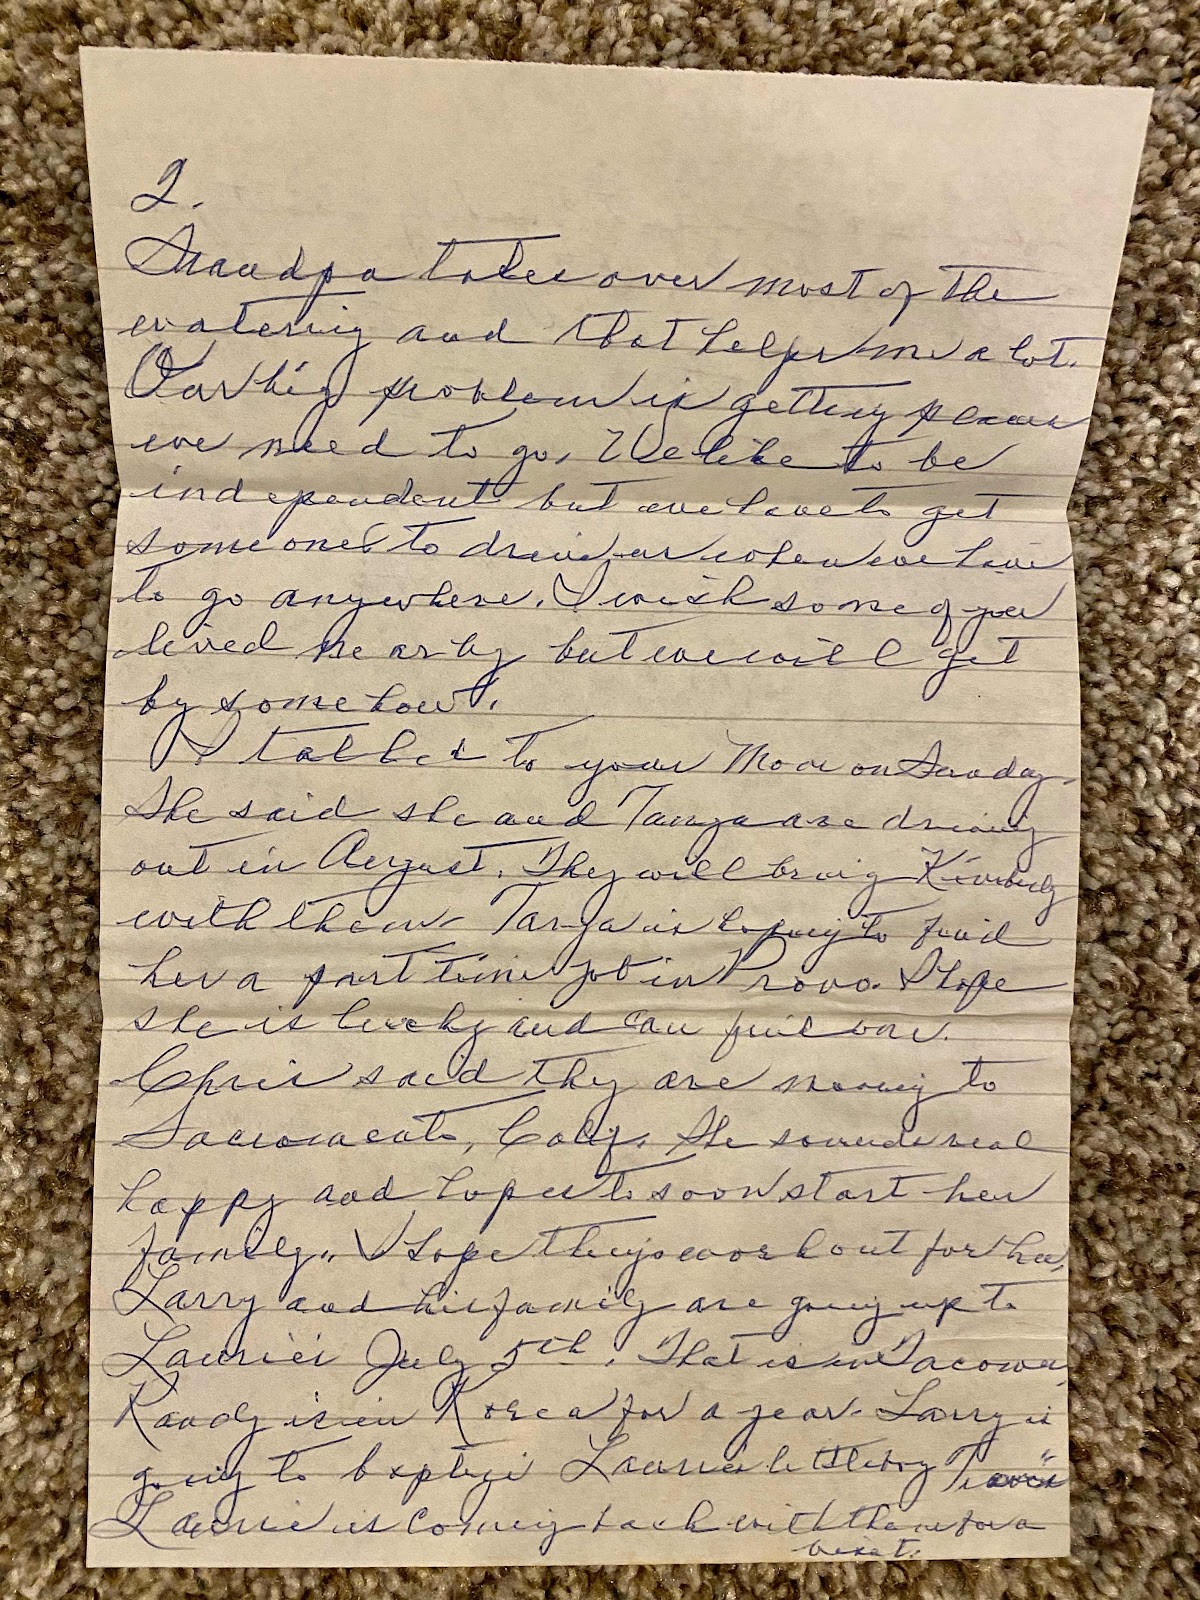 2.
Grandpa takes over most of the
watering and that helps me a lot.
Our big problem is getting places
we need to go. We like to be
independent but we have to get
someone to drive us when we have
to go anywhere. I wish some of you
lived nearby but we will get
by somehow.
I talked to your Mom on Sunday.
She said she and Tanya are driving
out in August. They will bring Kimberly
with them. Tanya is hoping to find
her a part time job in Provo. I hope
she is lucky and can find one.
Chris said they are moving to
Sacramento, Calif. She sounds real
happy and hopes to soon start her
family. I hope things work out for her.
Larry and his family are going up to
Laurie's July 5th. That is in Tacoma.
Randy is in Korea for a year. Larry is
going to baptize Laurie's little boy Travis
Laurie is coming back with them for a
visit.